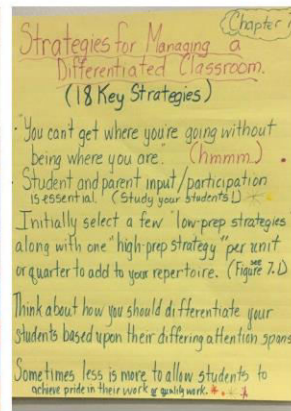 Chapter
Strategies for Managing a
Differentiated Classroom.
(18 Key Strategies)
"You can't get where you're going without
being where you are." (hmmm.)
Student and parent input/participation
is essential. (Study your students!)
Initially select a few "low-prep strategies
along with one "high-prep strategy" per unit
or quarter to add to your repertoire. (see Figure 7.1)
Think about how you should differentiate your
students based upon their differing attention spans
Sometimes less is more to allow students to
achieve pride in their work or quality work.